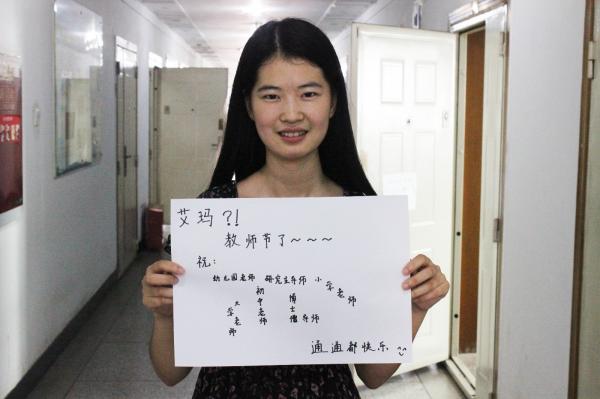 艾玛?!
教师节了~~~
祝:
幼儿园老师 研究生导师 小学老师
大学老师
初中老师
博士僧导师
通通都快乐